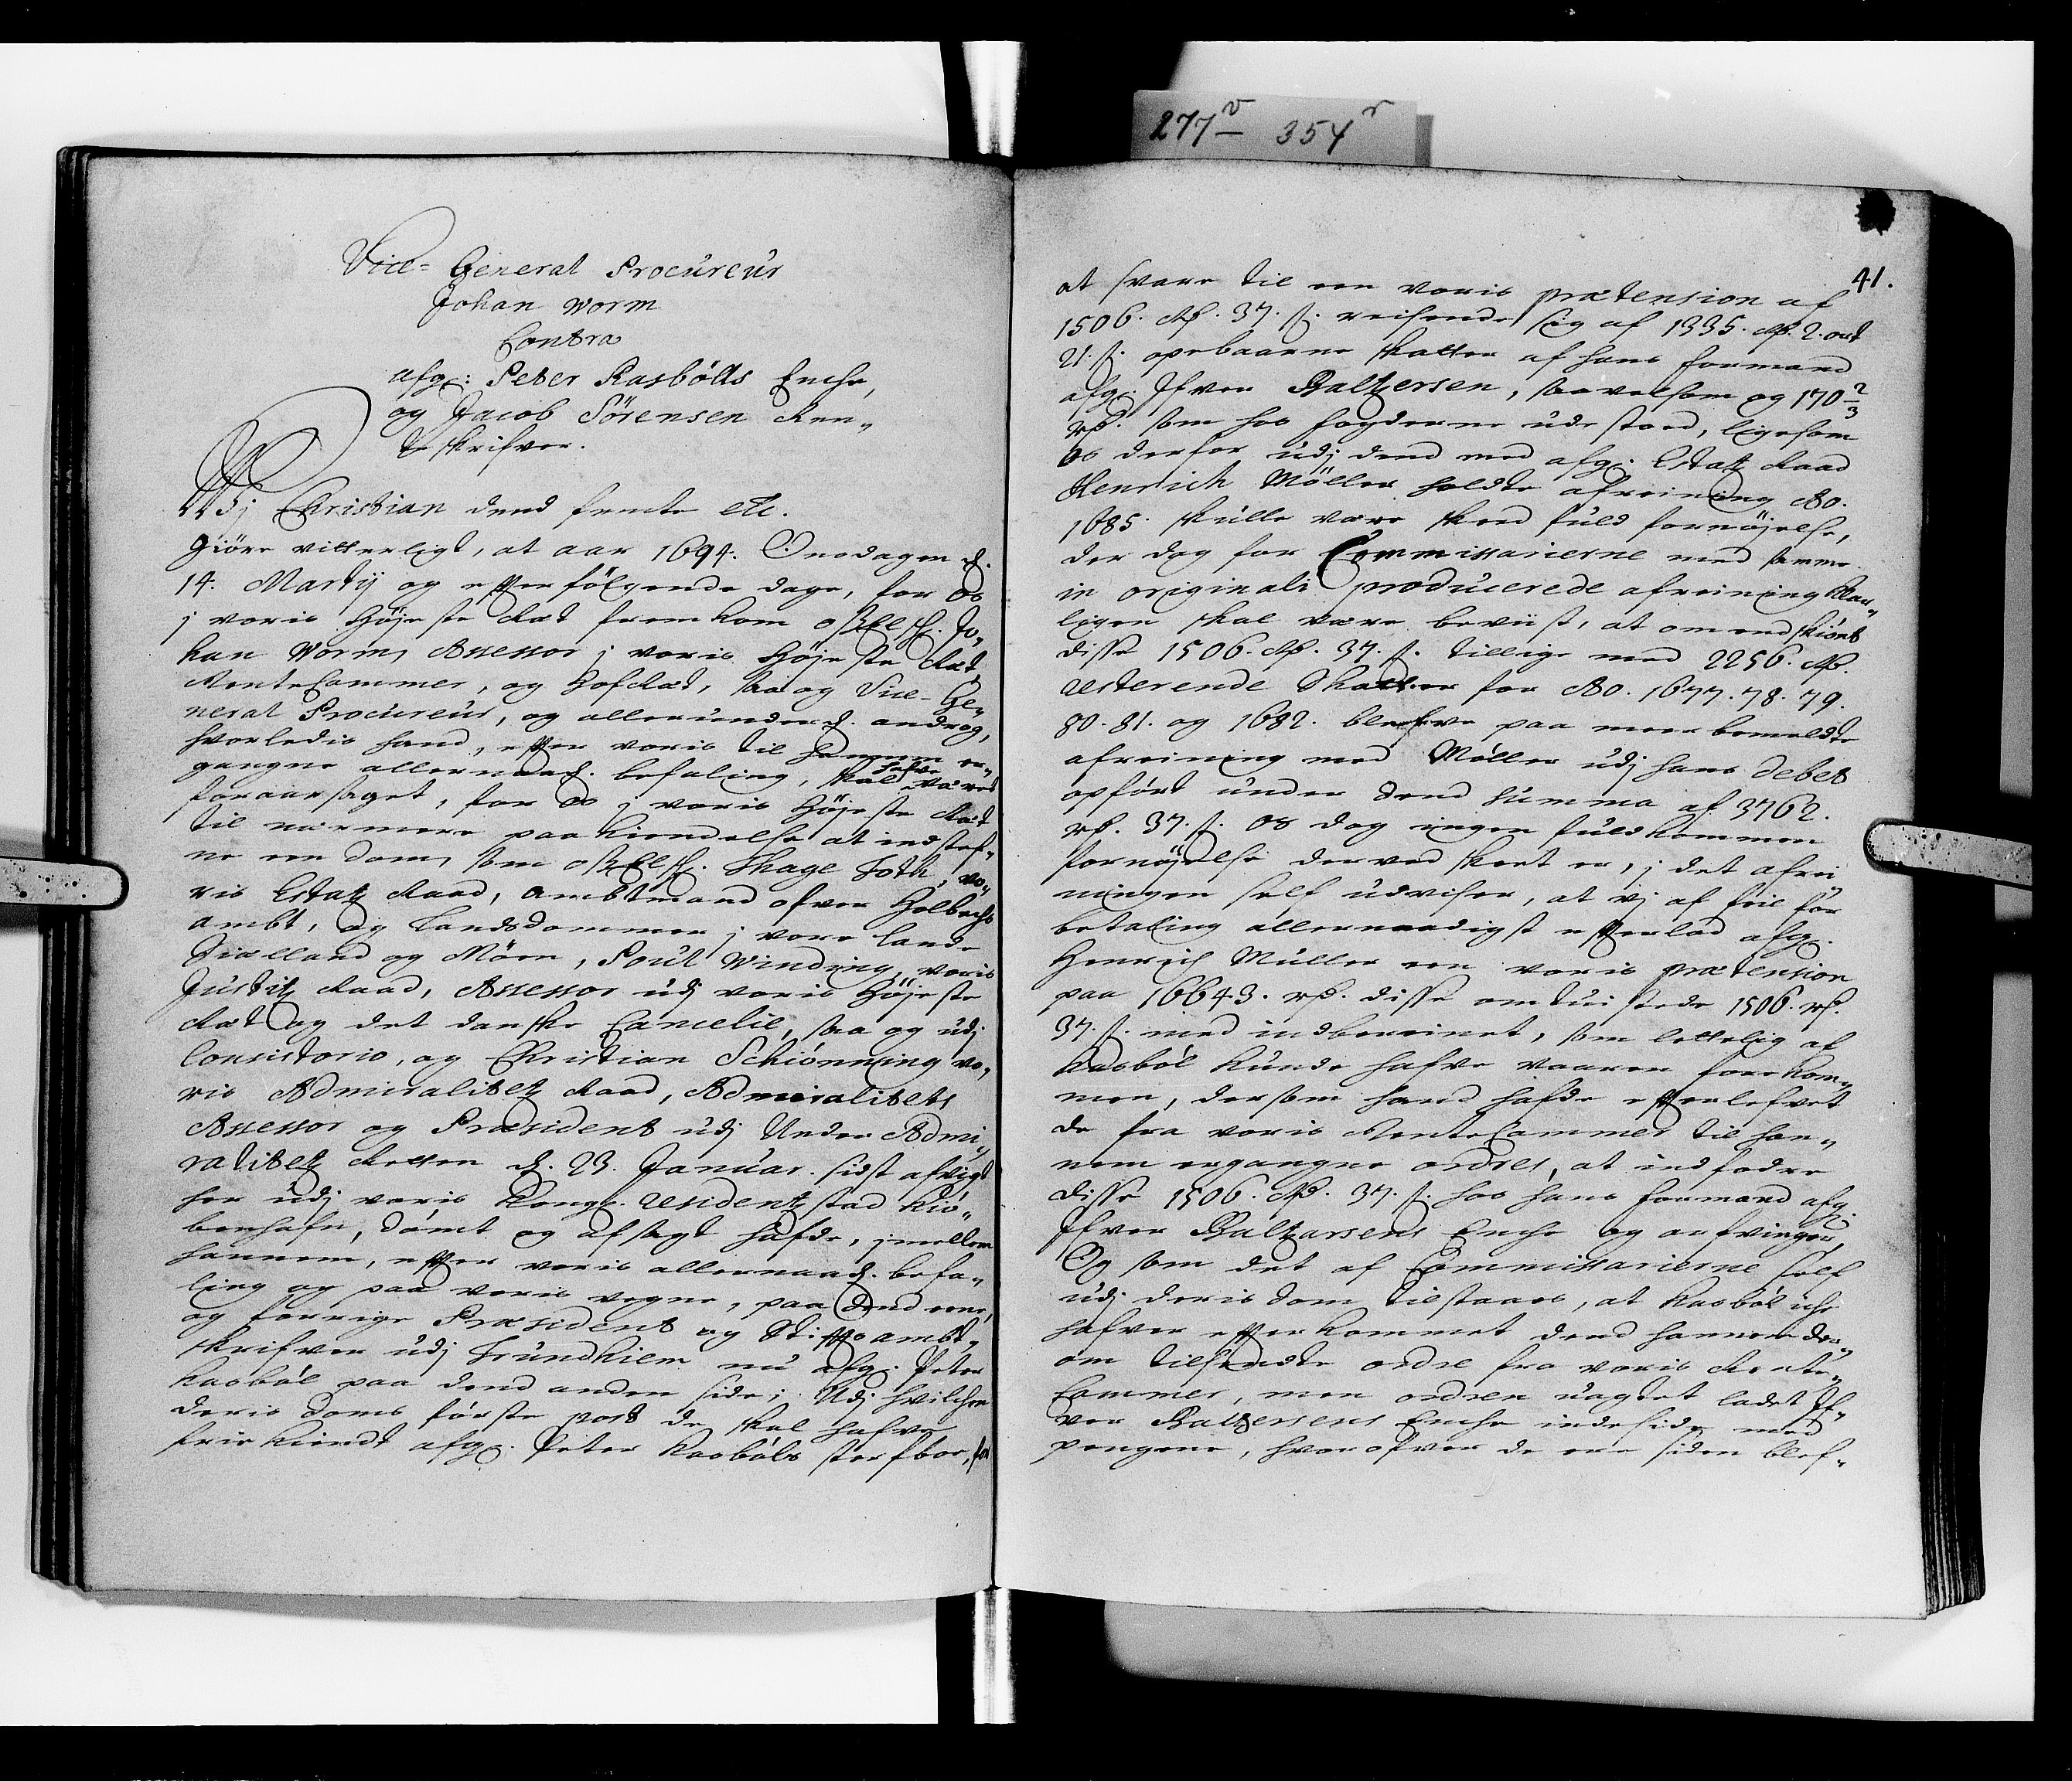 277v – 354r
Vice- General Procureur
Johan Worm
Contra
afg: Peter Kasbölls Enche,
og Jacob Sörensen Ren„
teskrifver.
Wj Christian dend femte etc.
Giöre vitterligt, at aar 1694. Onsdagen d.
14. Martij og efterfölgende dage, for os
j voris Höjeste Ræt fremkom Jo„
han Worm, Assessor j voris Höjeste Ræt,
RenteCammer, og HofRæt, saa og Vice-Ge„
neral Procureur, og allerunderd. androg,
hvorledis hand, efter voris til hannem er„
gangne allernaad. befaling, skal hafve været
foraarsaget, for os j voris Höjeste Ræt
til nærmere paakiendelse at indstef„
ne een dom, som Knud Thott, vo„
ris Etatz Raad, Ambtmand ofver Holbechs
ambt, og Landsdommer j vore lande
Siælland og Möen, Poul Winding, voris
Justitz Raad, Assessor udj voris Höjeste
Ræt og det danske Cancelie, saa og udj
Consistorio, og Christian Schiönning vo„
ris Admiralitetz Raad, Admiralitets
Assessor og Præsident udj Under Admi„
ralitetz Retten d. 23. Januar. sidst afvigt
her udj voris Kongl. residentz stad Kiö„
benhafn, dömt og afsagt hafde, jmellem
hannem, efter voris allernaad. befa„
ling og paa voris vegne, paa dend eene,
og forrige Præsident og Stiftsambt„
skrifver udj Trundhiem nu afg. Peter
Kasböl paa dend anden side; Udj hvilchen
deris doms förste post de skal hafve
frie kiendt afg. Peter Kasböls sterfboe, for
41.
at svare til een voris prætension af
1506. Rd. 37. s. reisende sig af 1335. Rd. 2. ort
21. s. opebaarne skatter af hans formand
afg. Ifver Baltzersen, saavelsom og 170 2/3
rd. som hos fogderne udestoed, ligesom
os derfor udj dend med afg. Etatz Raad
Henrich Möller holdte afreining Ao.
1685. skulle være skeed fuld fornöjelse,
der dog for Commissarierne med samme
in originali producerede afreining klar„
ligen skal være beviist, at omendskiönt
disse 1506. Rd. 37. s. tillige med 2256. Rd.
resterende Skatter for Ao. 1677. 78. 79.
80. 81. og 1682. blefve paa meerbemeldte
afreining med Möller udj hans debet
opfört under dend summa af 3762.
rd. 37. s. os dog ingen fuldkommen
fornöjelse derved skeet er, j det afrei
ningen self udviser, at vj af feil for
betaling allernaadigst efterlod afg.
Henrich Müller een voris prætension
paa 16643. rd. disse omtvistede 1506. rd.
37. s. med indbereinet, som lettelig af
Kasböl kunde hafve vaaren forekom„
men, dersom hand hafde efterlefvet
de fra voris RenteCammer til han„
nem ergangne ordres, at indfodre
disse 1506. Rd. 37. s. hos hans formand afg.
Ifver Baltzarsens Enche og arfvinger,
Og som det af Commissarierne self
udj deris dom tilstaaes, at Kasböl iche
hafver efterkommet dend hannem der„
om tilsendte ordre fra voris Rente„
Cammer, men ordren uagtet ladet If„
ver Baltzersens Enche indeside med
pengene, hvorofver de ere siden blef„